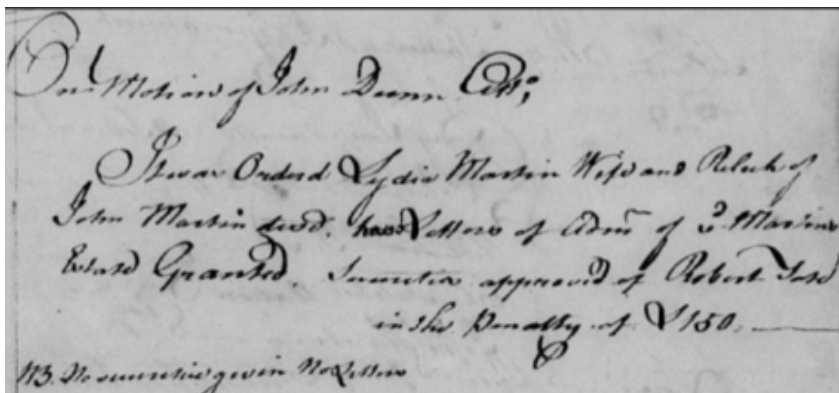 On Motion of John Dunn Esq;
It was Orderd Lydia Martin Wife and Relick of
John Martin decd. have Letters of Adm of sd. Martins
Estate Granted. Securities approved of Robert
in the Penalty of £150.
NB. No securitie given No Letters